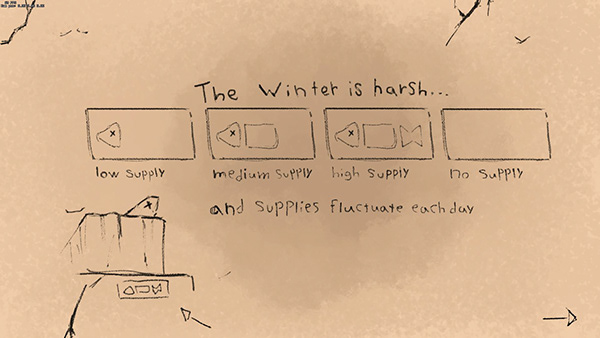 The Winter is harsh...
low supply
medium supply
high supply
no supply
and supplies fluctuate each day